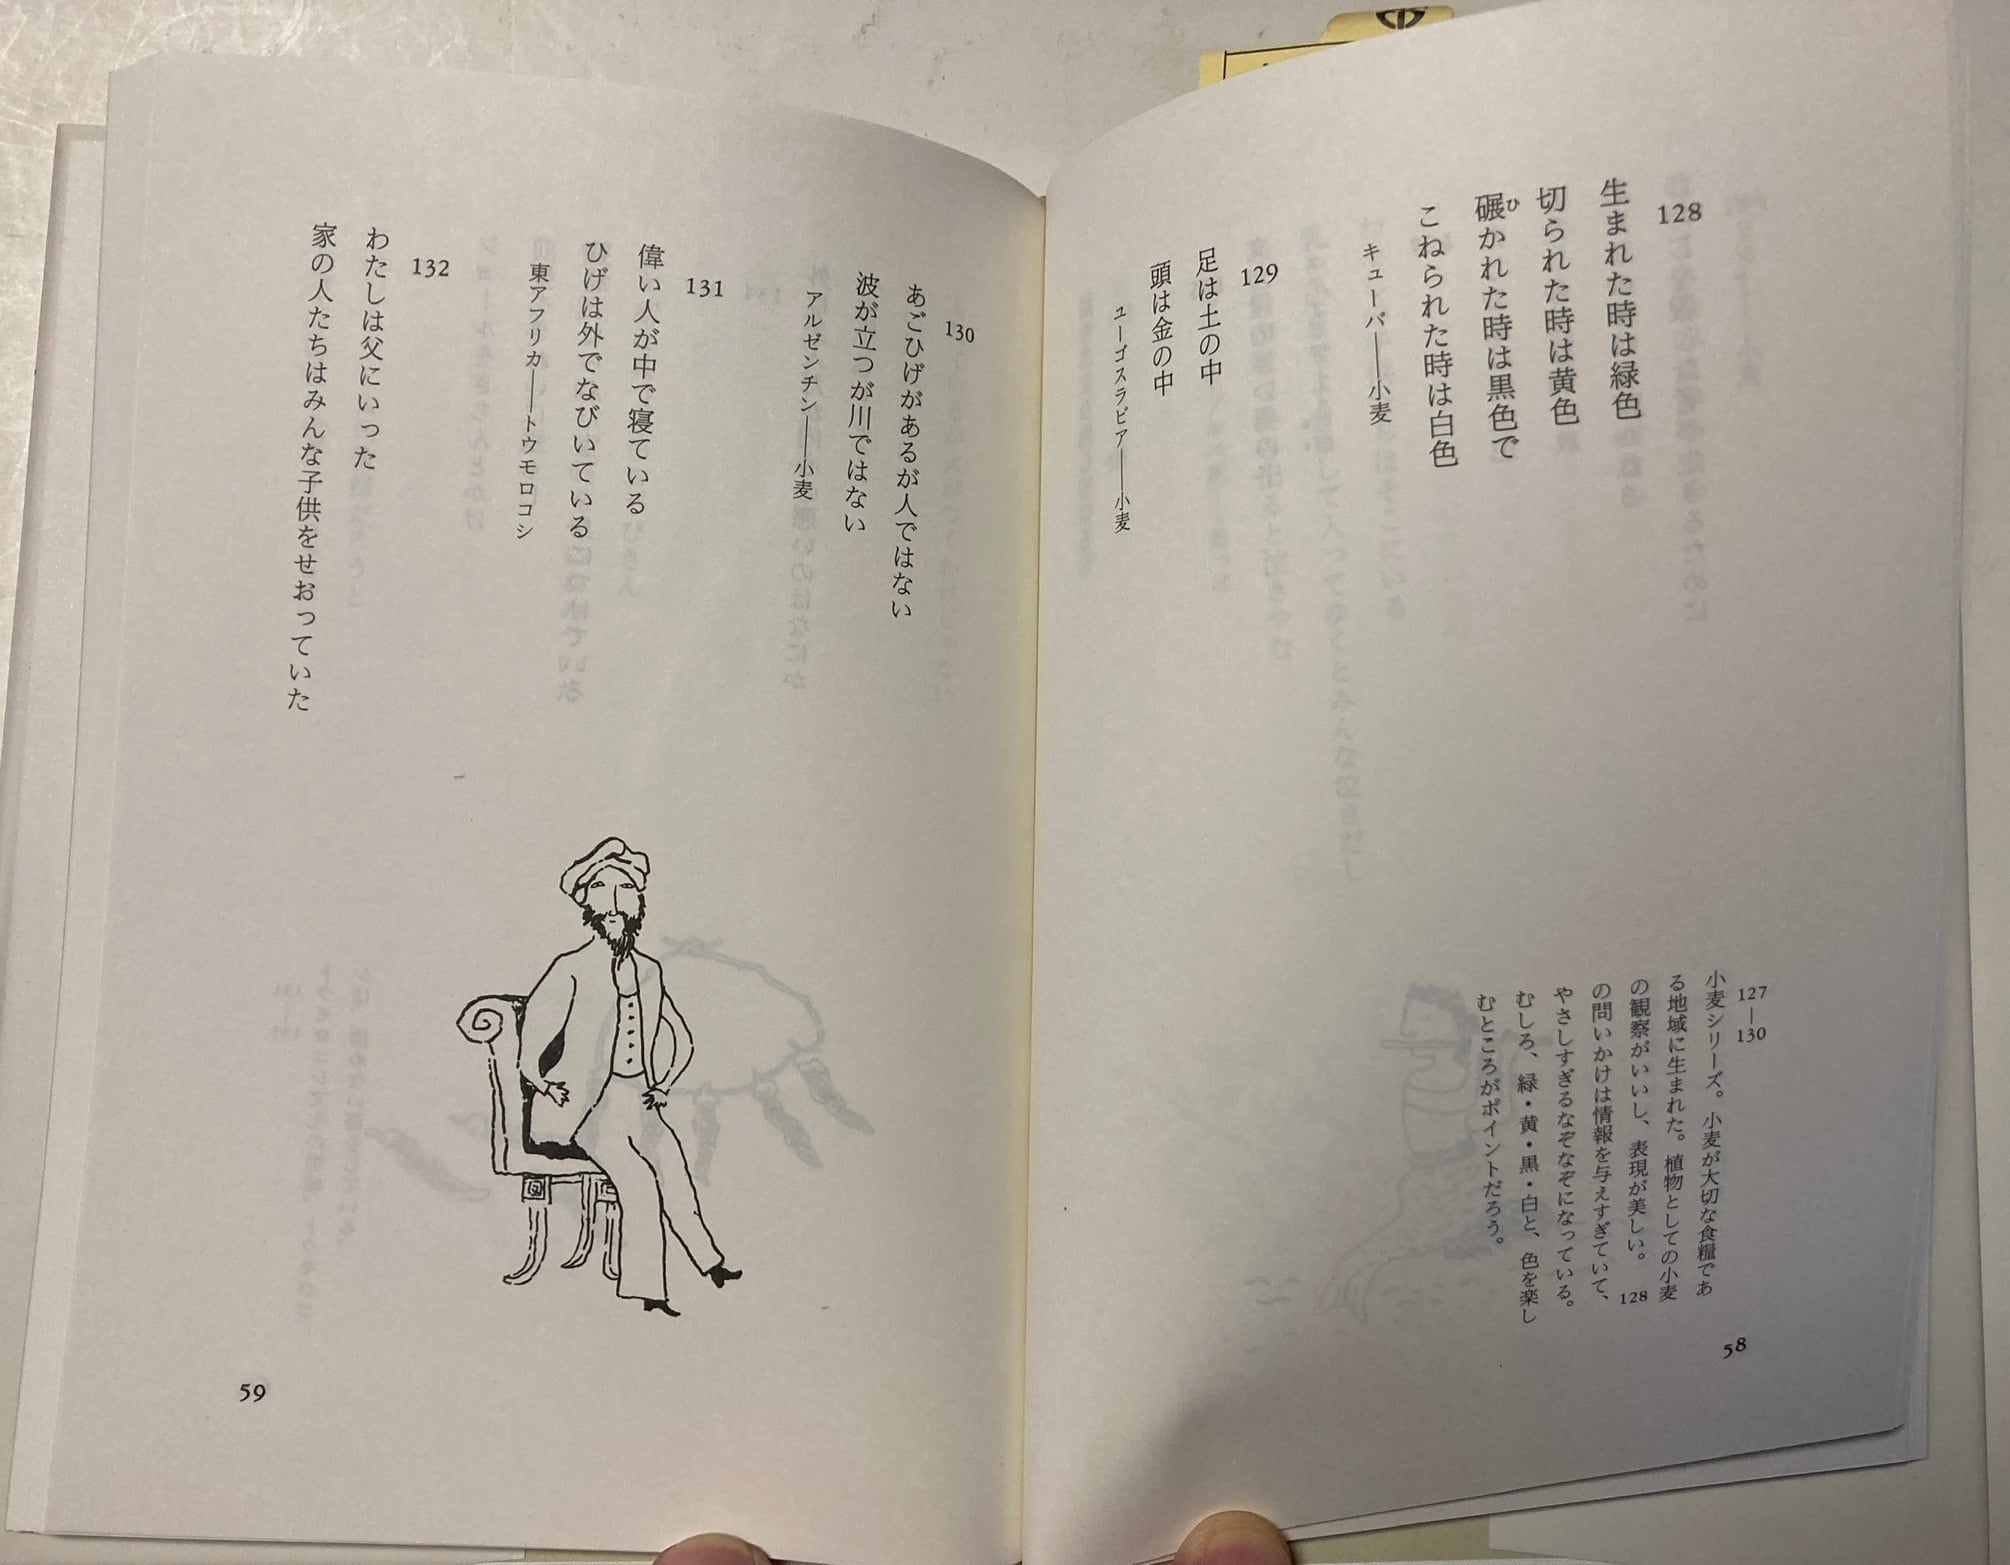 128
生まれた時は緑色
切られた時は黄色
碾かれた時は黒色で
こねられた時は白色
キューバ――小麦
129
足は土の中
頭は金の中
ユーゴスラビア――小麦
127―130
小麦シリーズ。小麦が大切な食糧であ
る地域に生まれた。植物としての小麦
の観察がいいし、表現が美しい。128
の問いかけは情報を与えすぎていて、
やさしすぎるなぞなぞになっている。
むしろ、緑・黄・黒・白と、色を楽し
むところがポイントだろう。
58
130
あごひげがあるが人ではない
波が立つが川ではない
アルゼンチン――小麦
131
偉い人が中で寝ている
ひげは外でなびいている
東アフリカ――トウモロコシ
132
わたしは父にいった
家の人たちはみんな子供をせおっていた
59